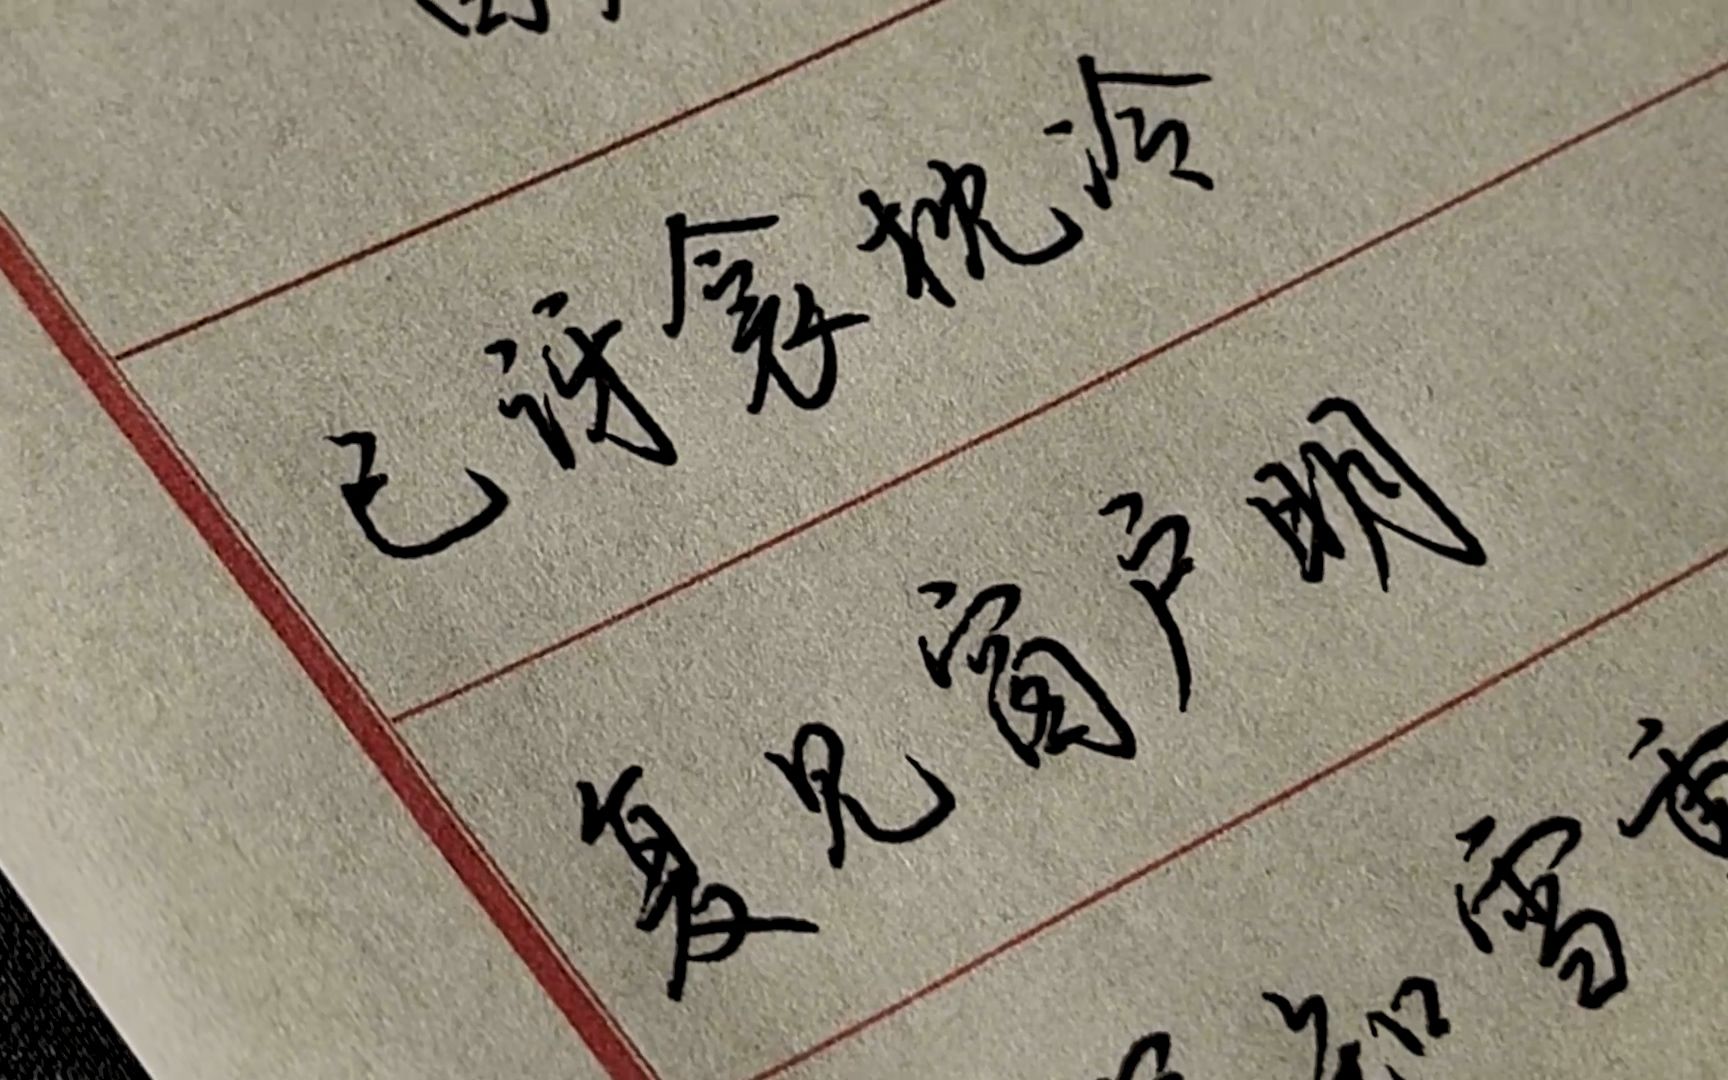 已讶衾枕冷
复见窗户明
知雪重